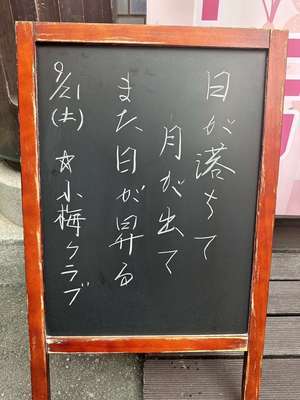 日が落ちて
月が出て
また日が昇る
9/21(土) ☆小梅クラブ